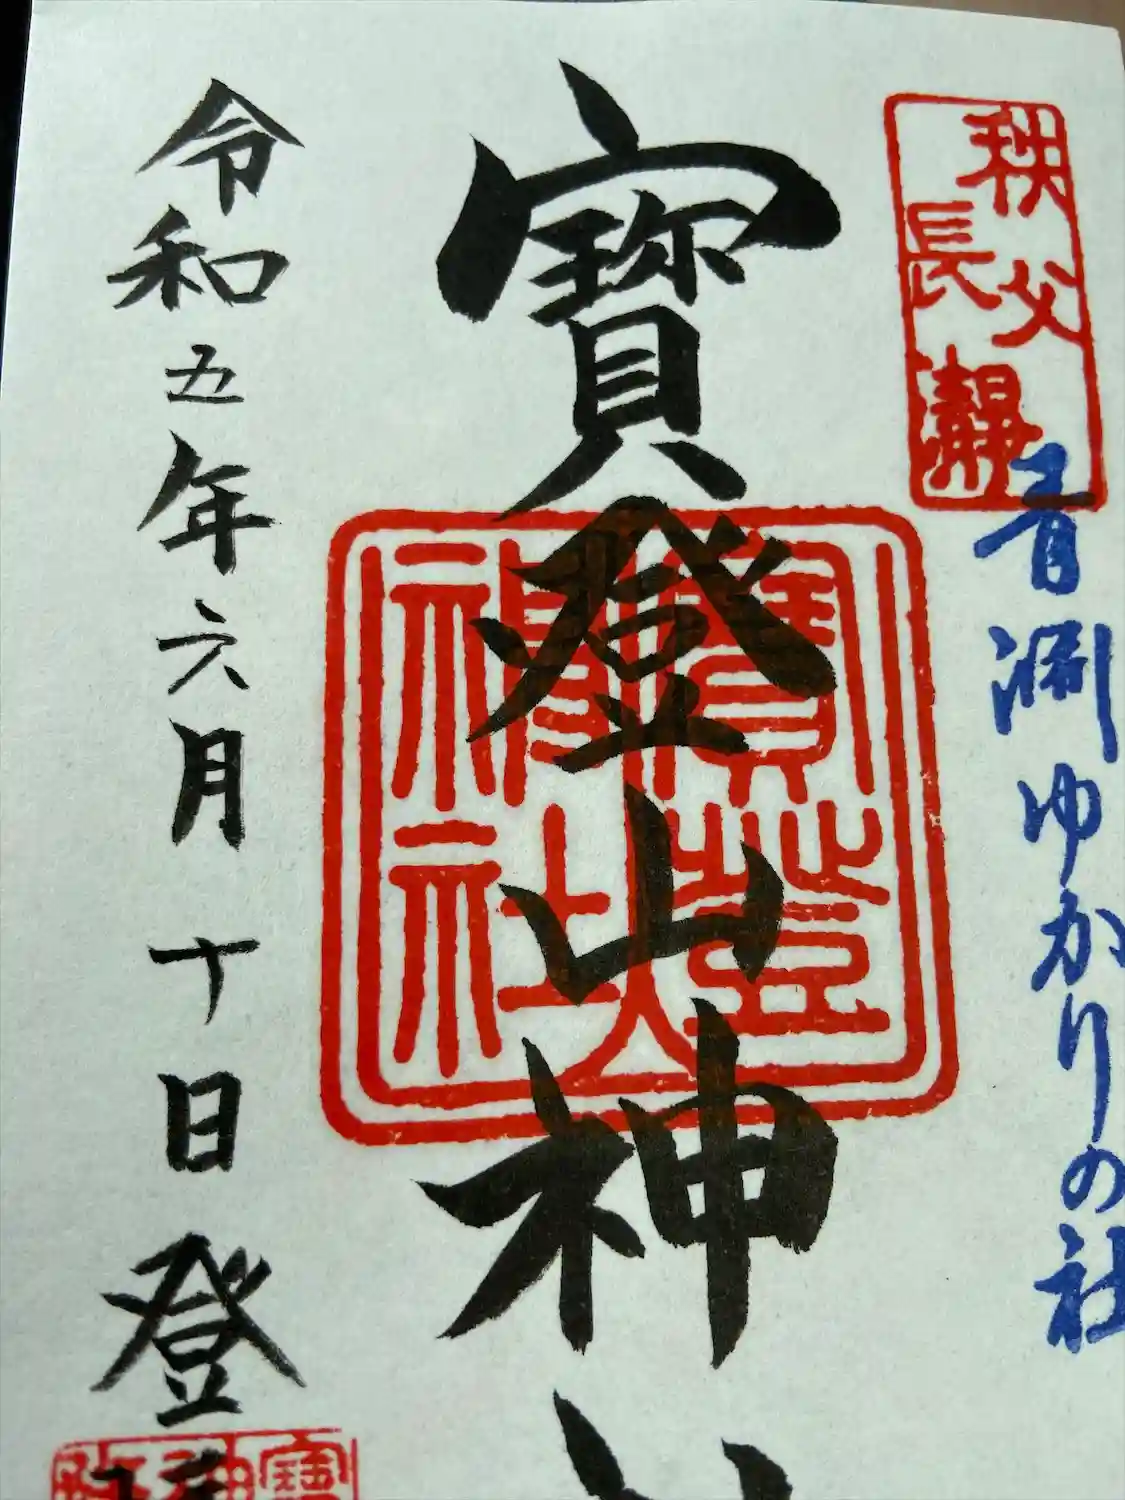 秩父
長瀞
青淵ゆかりの社
寳登山神
寳登
山神社
令和五年六月十日登